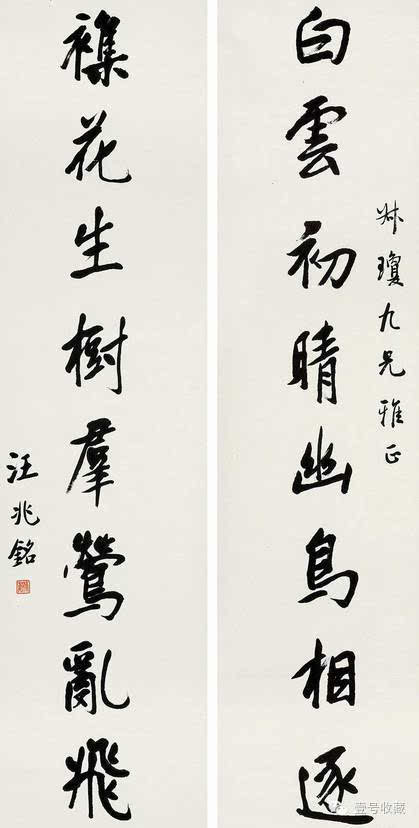 叔瓊九兄雅正
白雲初晴幽鳥相逐
襍花生樹羣鶯亂飛
汪兆銘
壹号收藏